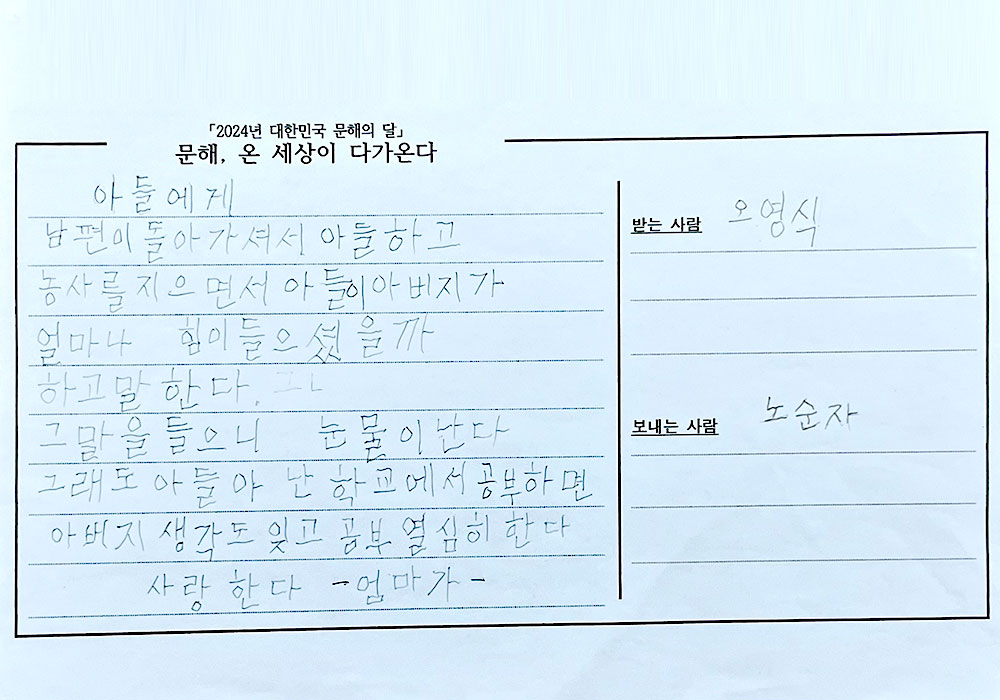 「2024년 대한민국 문해의 달」
문해, 온 세상이 다가온다
아들에게
남편이 돌아가셔서 아들하고
농사를 지으면서 아들이 아버지가
얼마나 힘이들으셨을까
하고말한다.
그말을 들으니 눈물이난다
그래도 아들아 난 학교에서 공부하면
아버지 생각도 잊고 공부 열심히 한다
사랑한다 -엄마가-
받는 사람 오영식
보내는 사람 노순자